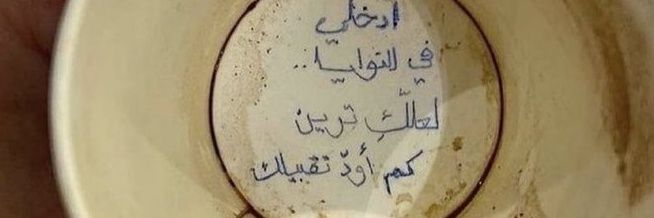 أدخلي
في النوايا..
لعللّكِ ترين
كم أودّ تقبيلك